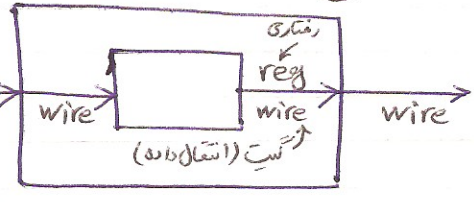 رفتاری
reg
wire wire wire
گیت (انتقال داده)